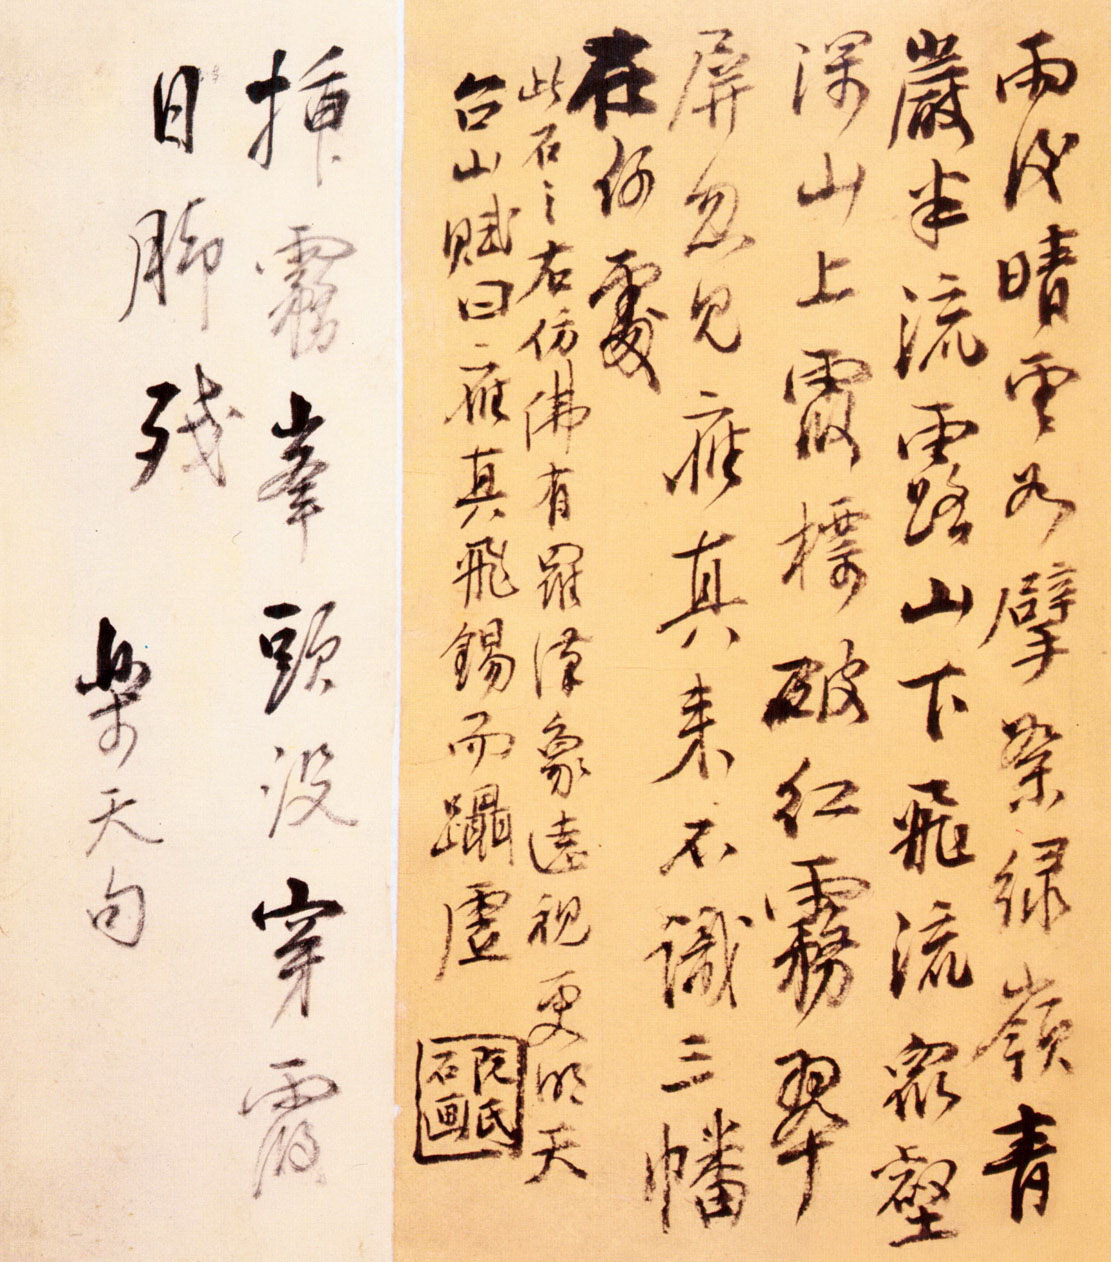 雨後晴雲如擘絮綠嶺青
巖半流雲路山下飛流眾壑
深山上霞標破紅霧翠
屏忽見應真来不識三幡
在何處
此石之右仿佛有羅漢象遠視更明天
台山賦曰應真飛錫而躡虛
阮氏
石画
插霧峯頭沒穿霞
日脚殘
樂天句